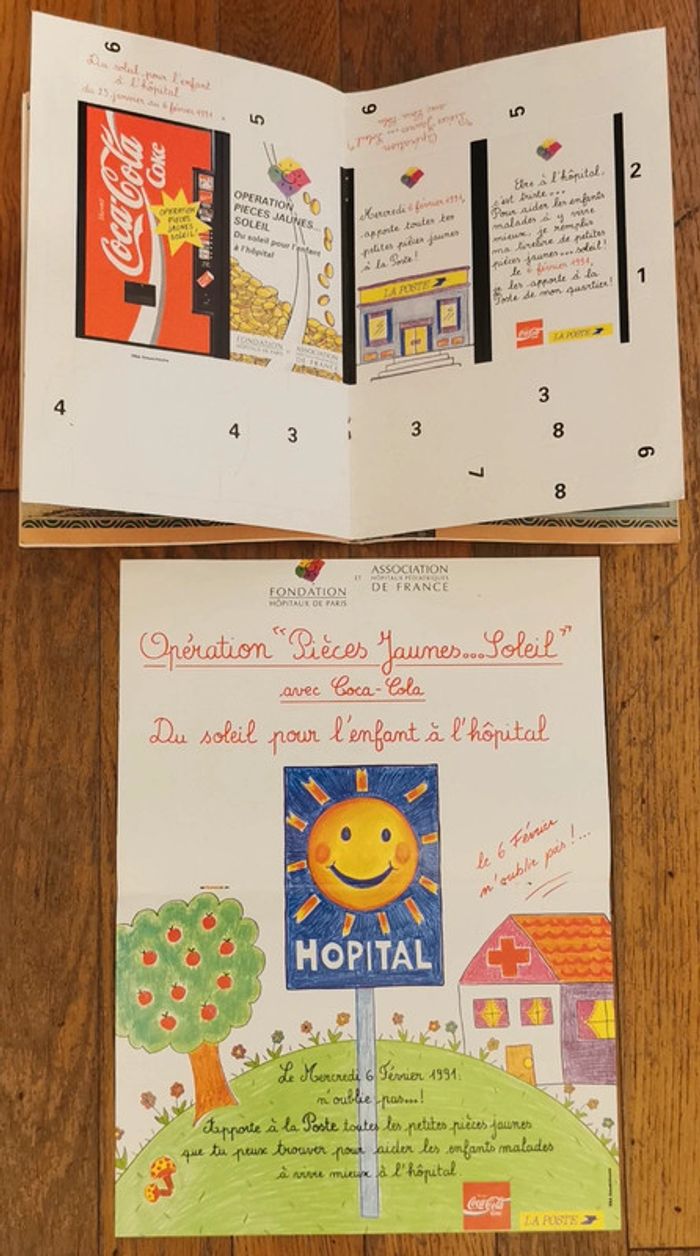 6
Du soleil pour l'enfant
à l'hôpital
du 23 janvier au 6 février 1991
5
Coca-Cola
Coke
OPERATION
PIECES
JAUNES...
SOLEIL!
OPERATION
PIECES JAUNES...
SOLEIL
Du soleil pour l'enfant
à l'hôpital
FONDATION
HÔPITAUX DE PARIS
ET
ASSOCIATION
DE FRANCE
4
4
3
6
Opération
"Pièces Jaunes... Soleil"
avec Coca-Cola
Mercredi 6 février 1991,
apporte toutes tes
petites pièces jaunes
à la Poste!
LA POSTE
5
Etre à l'hôpital,
c'est triste...
Pour aider les enfants
malades à y vivre
mieux, je remplis
ma tirelire de petites
pièces jaunes...soleil!
le 6 février 1991,
je les apporte à la
Poste de mon quartier!
Coca-Cola
LA POSTE
2
1
3
3
8
7
8
6
FONDATION
HÔPITAUX DE PARIS
ET
ASSOCIATION
HÔPITAUX PÉDIATRIQUES
DE FRANCE
Opération "Pièces Jaunes...Soleil"
avec Coca-Cola
Du soleil pour l'enfant à l'hôpital
le 6 Février
n'oublie pas!...
HOPITAL
Le Mercredi 6 Février 1991:
n'oublie pas...!
J'apporte à la Poste toutes les petites pièces jaunes
que tu peux trouver pour aider les enfants malades
à vivre mieux à l'hôpital.
Coca-Cola
Coke
LA POSTE